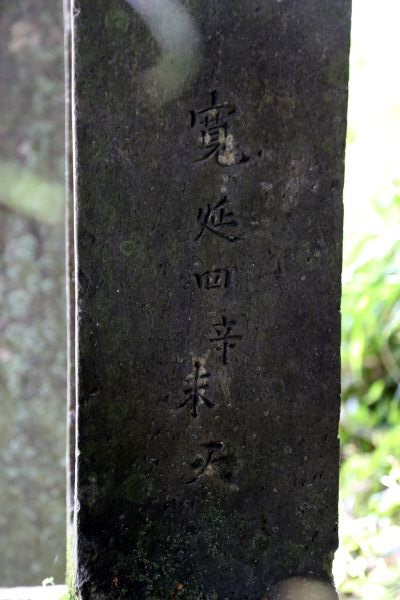 寛延四辛未天